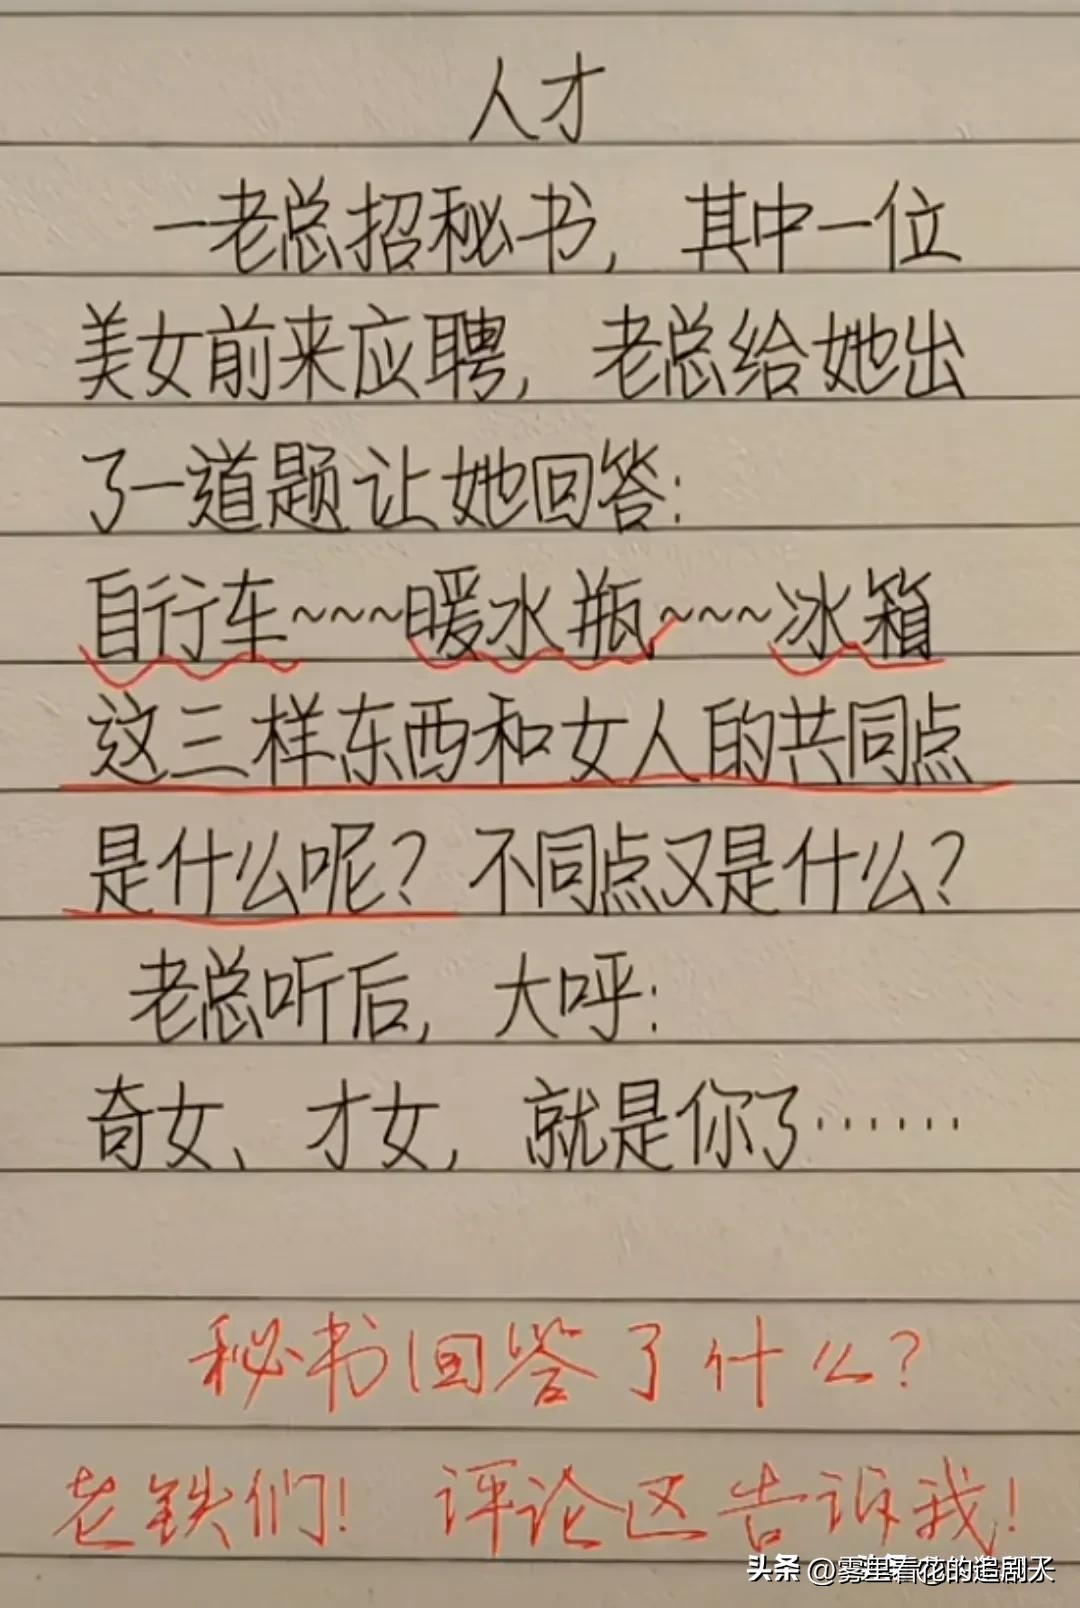 人才
一老总招秘书，其中一位
美女前来应聘，老总给她出
了一道题让她回答：
自行车~~~暖水瓶~~~冰箱
这三样东西和女人的共同点
是什么呢？不同点又是什么？
老总听后，大呼：
奇女、才女，就是你了……
秘书回答了什么？
老铁们！评论区告诉我！
头条 @雾里看花的追剧人